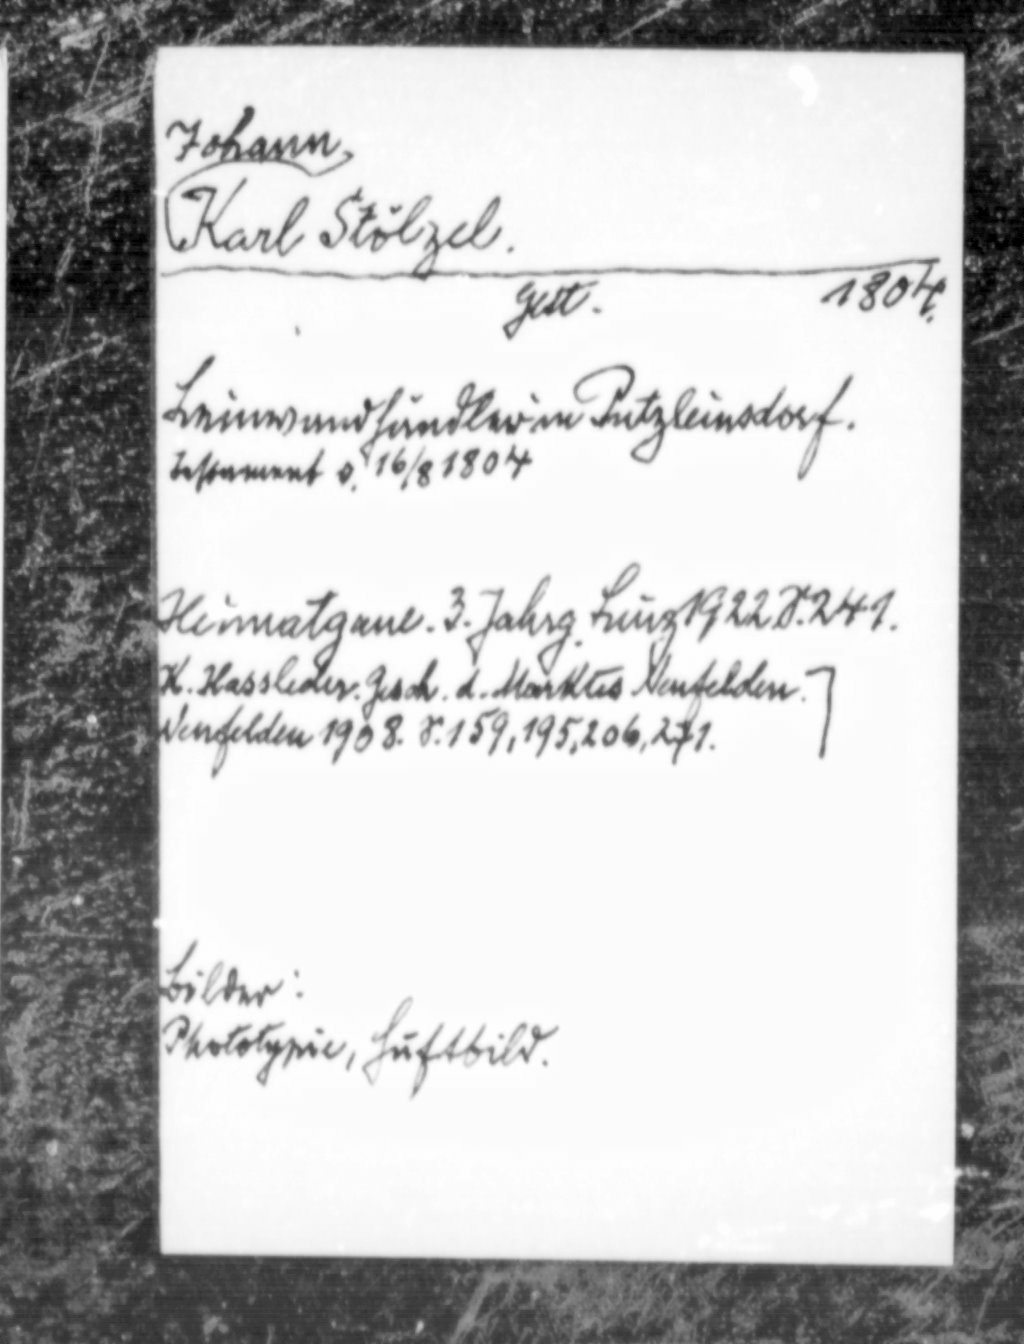 Johann,
Karl Stölzel.
gest. 1804.
Leinwandhändler in Putzleinsdorf.
Testament v. 16/8 1804
Heimatgaue. 3. Jahrg. Linz 1922 S. 241.
K. Hassleder. Gesch. d. Marktes Neufelden.
Neufelden 1908. S. 159, 195, 206, 271.
Bilder:
Phototypie, Hüftbild.